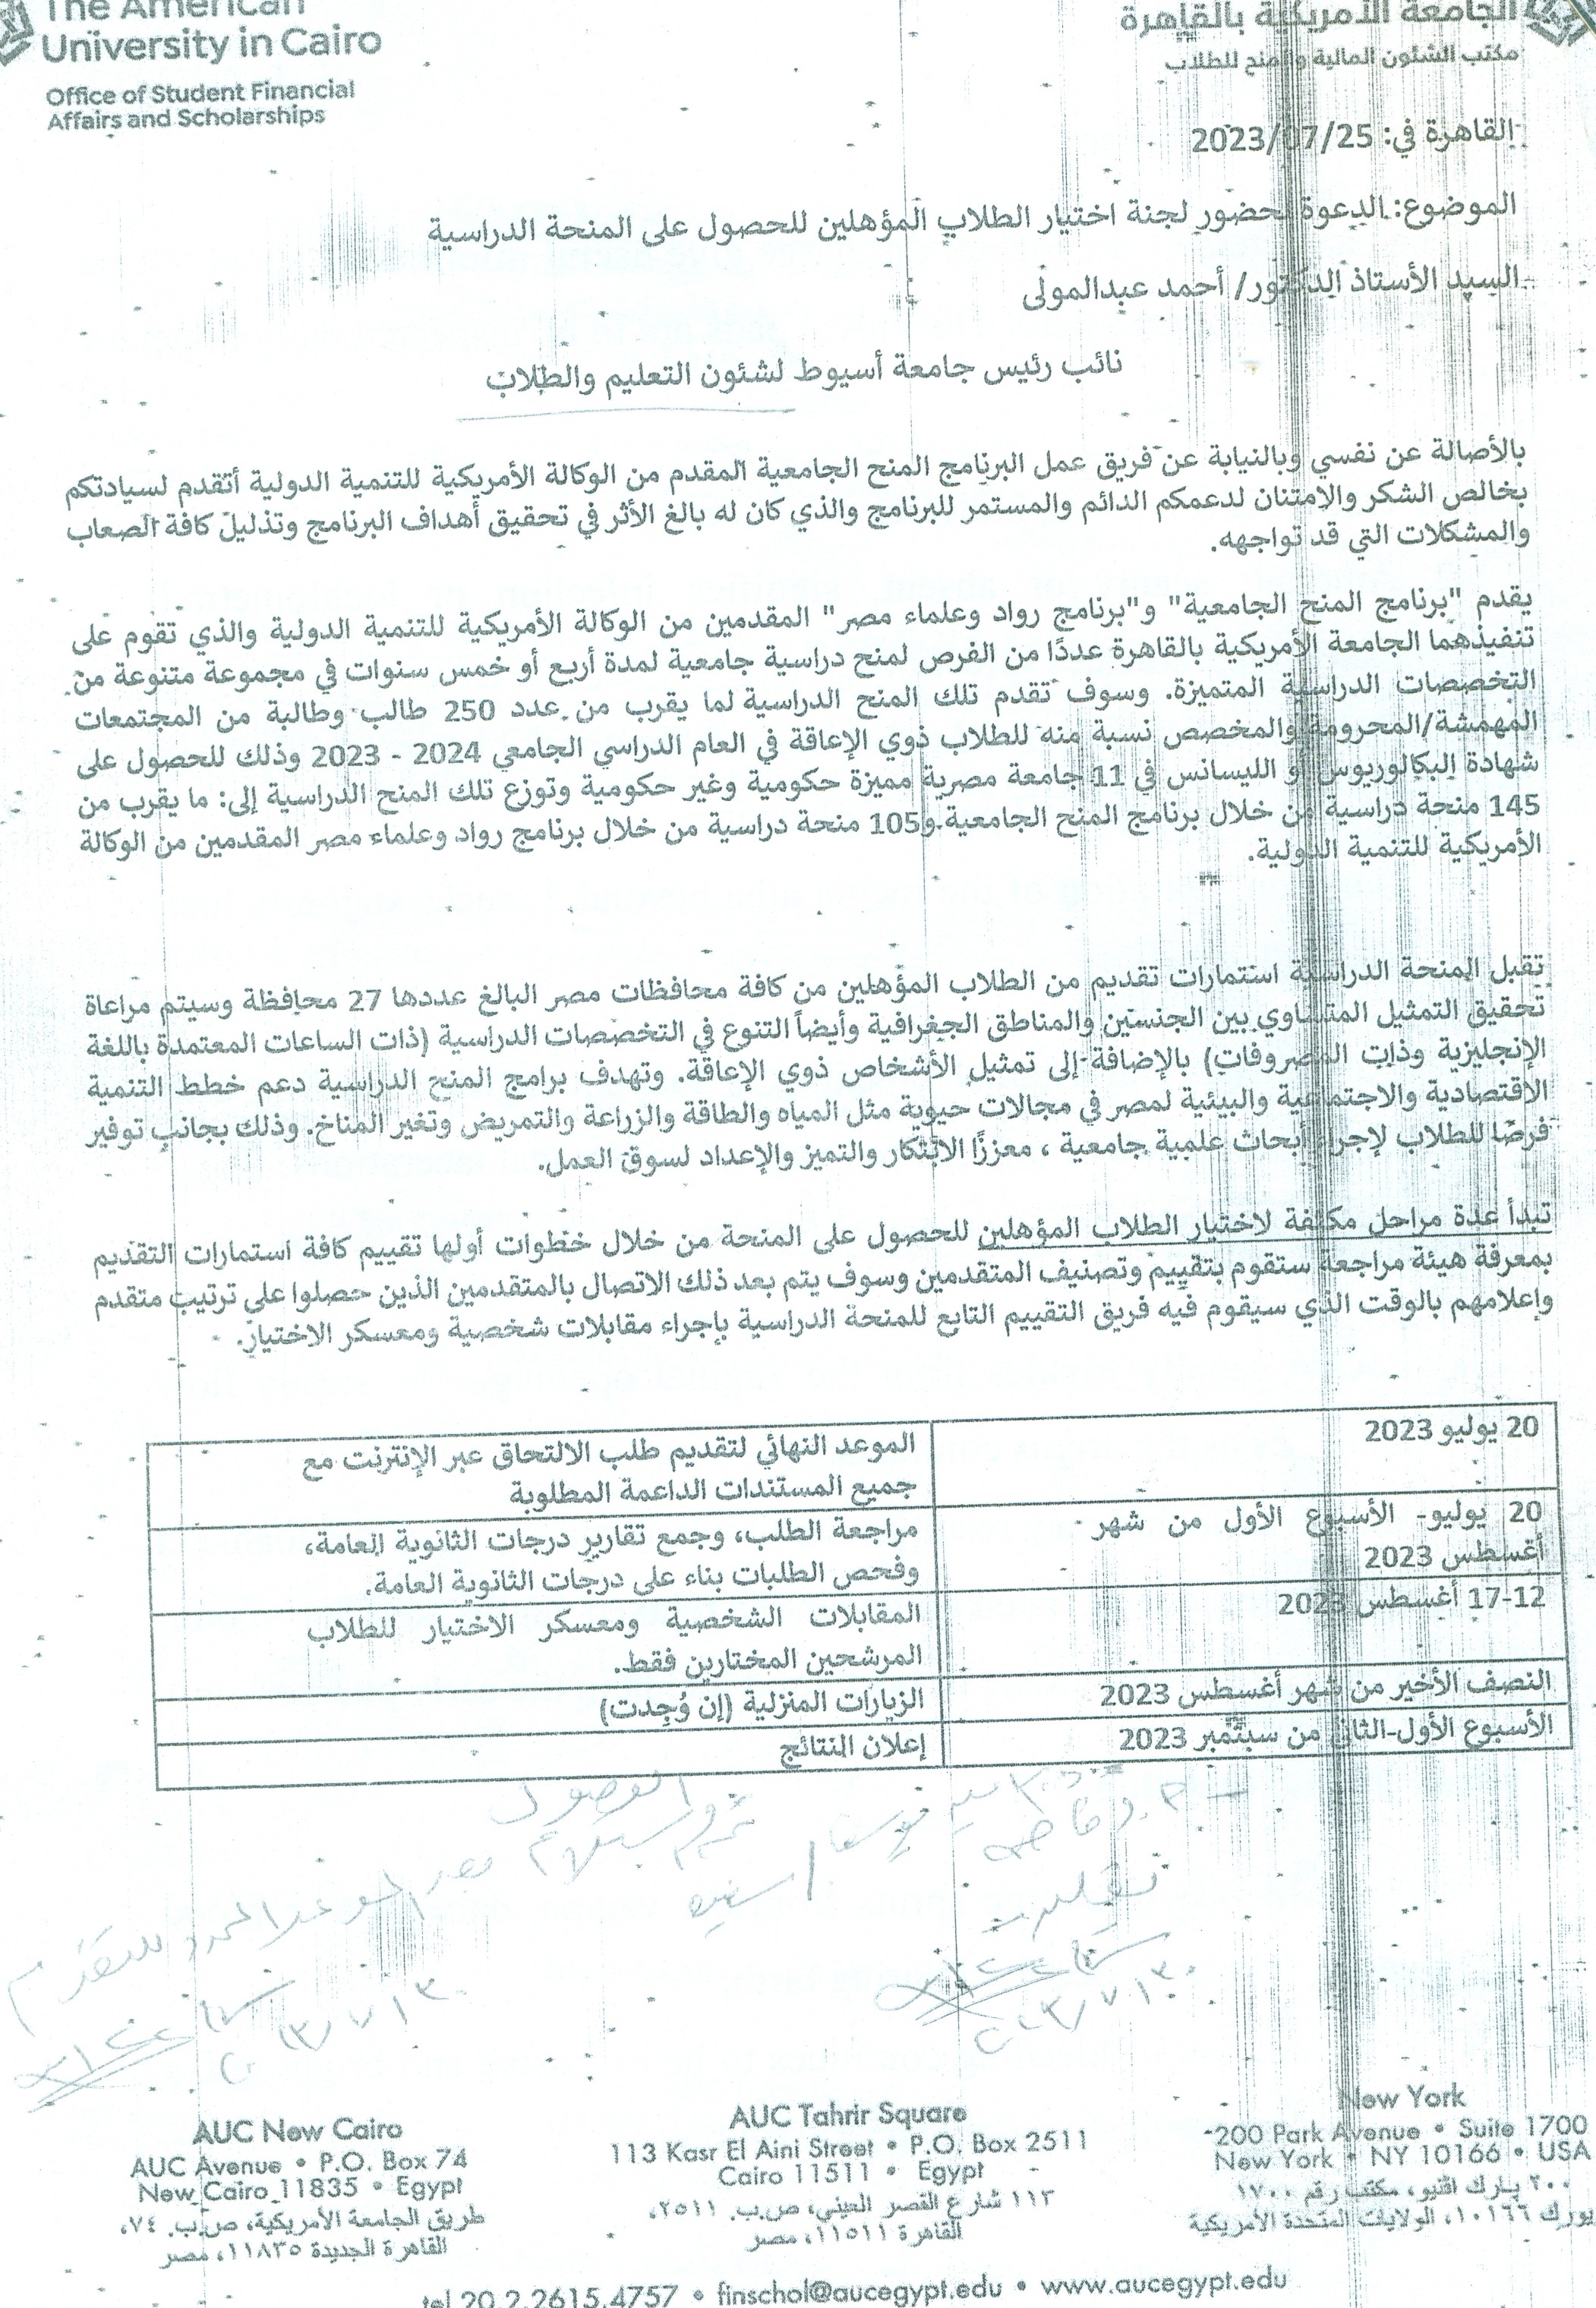 The American
University in Cairo
Office of Student Financial
Affairs and Scholarships
الجامعة الأمريكية بالقاهرة
مكتب الشئون المالية والمنح للطلاب
القاهرة في: 2023/07/25
الموضوع: الدعوة لحضور لجنة اختيار الطلاب المؤهلين للحصول على المنحة الدراسية
السيد الأستاذ الدكتور/ أحمد عبدالمولى
نائب رئيس جامعة أسيوط لشئون التعليم والطلاب
بالأصالة عن نفسي وبالنيابة عن فريق عمل البرنامج المنح الجامعية المقدم من الوكالة الأمريكية للتنمية الدولية أتقدم لسيادتكم
بخالص الشكر والامتنان لدعمكم الدائم والمستمر للبرنامج والذي كان له بالغ الأثر في تحقيق أهداف البرنامج وتذليل كافة الصعاب
والمشكلات التي قد تواجهه.
يقدم "برنامج المنح الجامعية" و"برنامج رواد وعلماء مصر" المقدمين من الوكالة الأمريكية للتنمية الدولية والذي تقوم على
تنفيذهما الجامعة الأمريكية بالقاهرة عددًا من الفرص لمنح دراسية جامعية لمدة أربع أو خمس سنوات في مجموعة متنوعة من
التخصصات الدراسية المتميزة. وسوف تقدم تلك المنح الدراسية لما يقرب من عدد 250 طالب وطالبة من المجتمعات
المهمشة/المحرومة والمخصص نسبة منه للطلاب ذوي الإعاقة في العام الدراسي الجامعي 2024 - 2023 وذلك للحصول على
شهادة البكالوريوس أو الليسانس في 11 جامعة مصرية مميزة حكومية وغير حكومية وتوزع تلك المنح الدراسية إلى: ما يقرب من
145 منحة دراسية من خلال برنامج المنح الجامعية و105 منحة دراسية من خلال برنامج رواد وعلماء مصر المقدمين من الوكالة
الأمريكية للتنمية الدولية.
تقبل المنحة الدراسية استمارات تقديم من الطلاب المؤهلين من كافة محافظات مصر البالغ عددها 27 محافظة وسيتم مراعاة
تحقيق التمثيل المتساوي بين الجنسين والمناطق الجغرافية وأيضاً التنوع في التخصصات الدراسية (ذات الساعات المعتمدة باللغة
الإنجليزية وذات المصروفات) بالإضافة إلى تمثيل الأشخاص ذوي الإعاقة. وتهدف برامج المنح الدراسية دعم خطط التنمية
الاقتصادية والاجتماعية والبيئية لمصر في مجالات حيوية مثل المياه والطاقة والزراعة والتمريض وتغير المناخ. وذلك بجانب توفير
فرصًا للطلاب لإجراء أبحاث علمية جامعية ، معززًا الابتكار والتميز والإعداد لسوق العمل.
تبدأ عدة مراحل مكثفة لاختيار الطلاب المؤهلين للحصول على المنحة من خلال خطوات أولها تقييم كافة استمارات التقديم
بمعرفة هيئة مراجعة ستقوم بتقييم وتصنيف المتقدمين وسوف يتم بعد ذلك الاتصال بالمتقدمين الذين حصلوا على ترتيب متقدم
وإعلامهم بالوقت الذي سيقوم فيه فريق التقييم التابع للمنحة الدراسية بإجراء مقابلات شخصية ومعسكر الاختيار.
20 يوليو 2023
الموعد النهائي لتقديم طلب الالتحاق عبر الإنترنت مع
جميع المستندات الداعمة المطلوبة
20 يوليو- الأسبوع الأول من شهر
أغسطس 2023
مراجعة الطلب، وجمع تقارير درجات الثانوية العامة،
وفحص الطلبات بناء على درجات الثانوية العامة.
17-12 أغسطس 2023
المقابلات الشخصية ومعسكر الاختيار للطلاب
المرشحين المختارين فقط.
النصف الأخير من شهر أغسطس 2023
الزيارات المنزلية (إن وُجِدت)
الأسبوع الأول-الثاني من سبتمبر 2023
إعلان النتائج
AUC New Cairo
AUC Avenue • P.O. Box 74
New Cairo 11835 • Egypt
طريق الجامعة الأمريكية، ص.ب. ٧٤،
القاهرة الجديدة ١١٨٣٥، مصر
AUC Tahrir Square
113 Kasr El Aini Street • P.O. Box 2511
Cairo 11511 • Egypt
١١٣ شارع القصر العيني، ص.ب. ٢٥١١،
القاهرة ١١٥١١، مصر
New York
200 Park Avenue • Suite 1700
New York • NY 10166 • USA
٢٠٠ بارك افنيو، مكتب رقم ١٧٠٠
يورك ١٠١٦٦، الولايات المتحدة الأمريكية
tel 20.2.2615.4757 • finschol@aucegypt.edu • www.aucegypt.edu